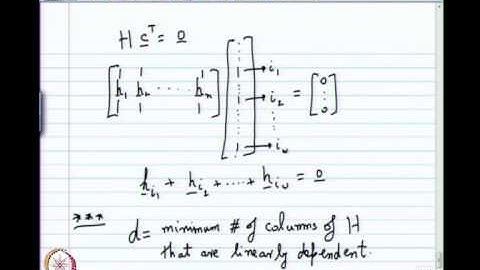 H c^T = 0
[h1 h2 ..... hn] [⋮ 1 → i1 ⋮ 1 → i2 ⋮ 1 → iw] = [0 ⋮ 0]
h i1 + h i2 + ..... + h iw = 0
*** d = minimum # of columns of H
that are linearly dependent.